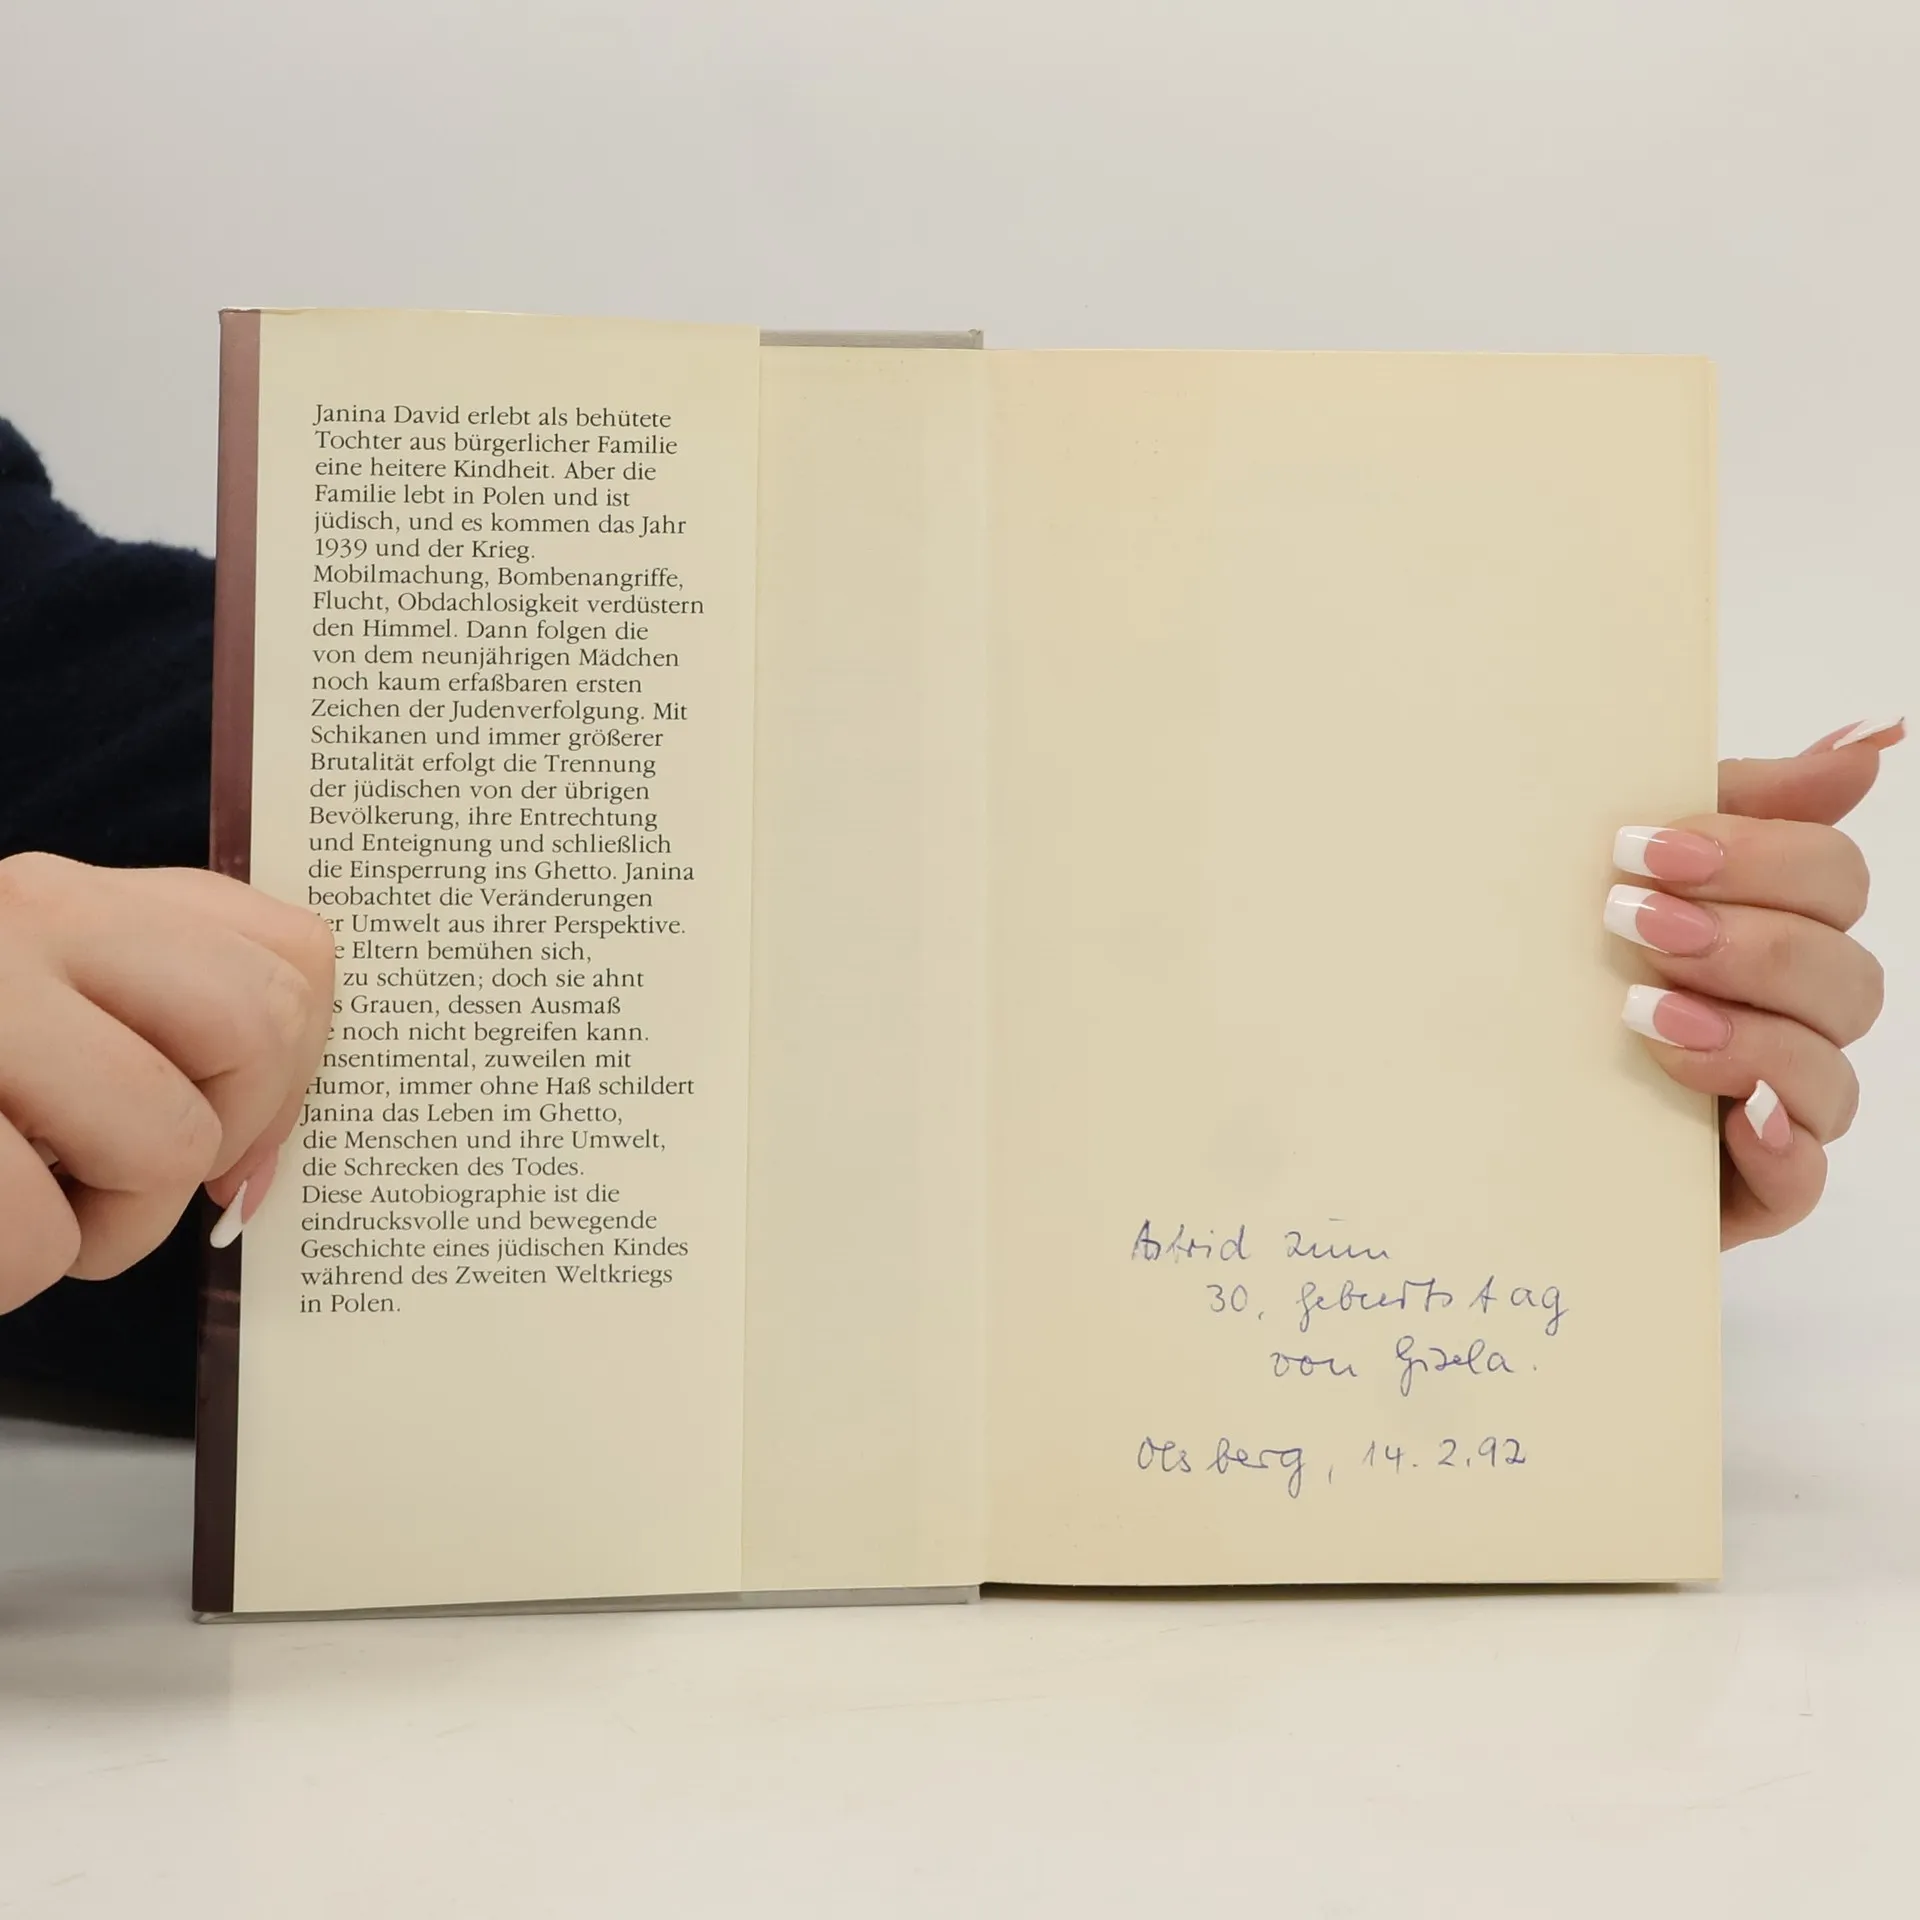 Janina David erlebt als behütete
Tochter aus bürgerlicher Familie
eine heitere Kindheit. Aber die
Familie lebt in Polen und ist
jüdisch, und es kommen das Jahr
1939 und der Krieg.
Mobilmachung, Bombenangriffe,
Flucht, Obdachlosigkeit verdüstern
den Himmel. Dann folgen die
von dem neunjährigen Mädchen
noch kaum erfaßbaren ersten
Zeichen der Judenverfolgung. Mit
Schikanen und immer größerer
Brutalität erfolgt die Trennung
der jüdischen von der übrigen
Bevölkerung, ihre Entrechtung
und Enteignung und schließlich
die Einsperrung ins Ghetto. Janina
beobachtet die Veränderungen
er Umwelt aus ihrer Perspektive.
e Eltern bemühen sich,
zu schützen; doch sie ahnt
s Grauen, dessen Ausmaß
e noch nicht begreifen kann.
nsentimental, zuweilen mit
Humor, immer ohne Haß schildert
Janina das Leben im Ghetto,
die Menschen und ihre Umwelt,
die Schrecken des Todes.
Diese Autobiographie ist die
eindrucksvolle und bewegende
Geschichte eines jüdischen Kindes
während des Zweiten Weltkriegs
in Polen.
Astrid zum
30. Geburtstag
von Gisela.
Olsberg, 14.2.92